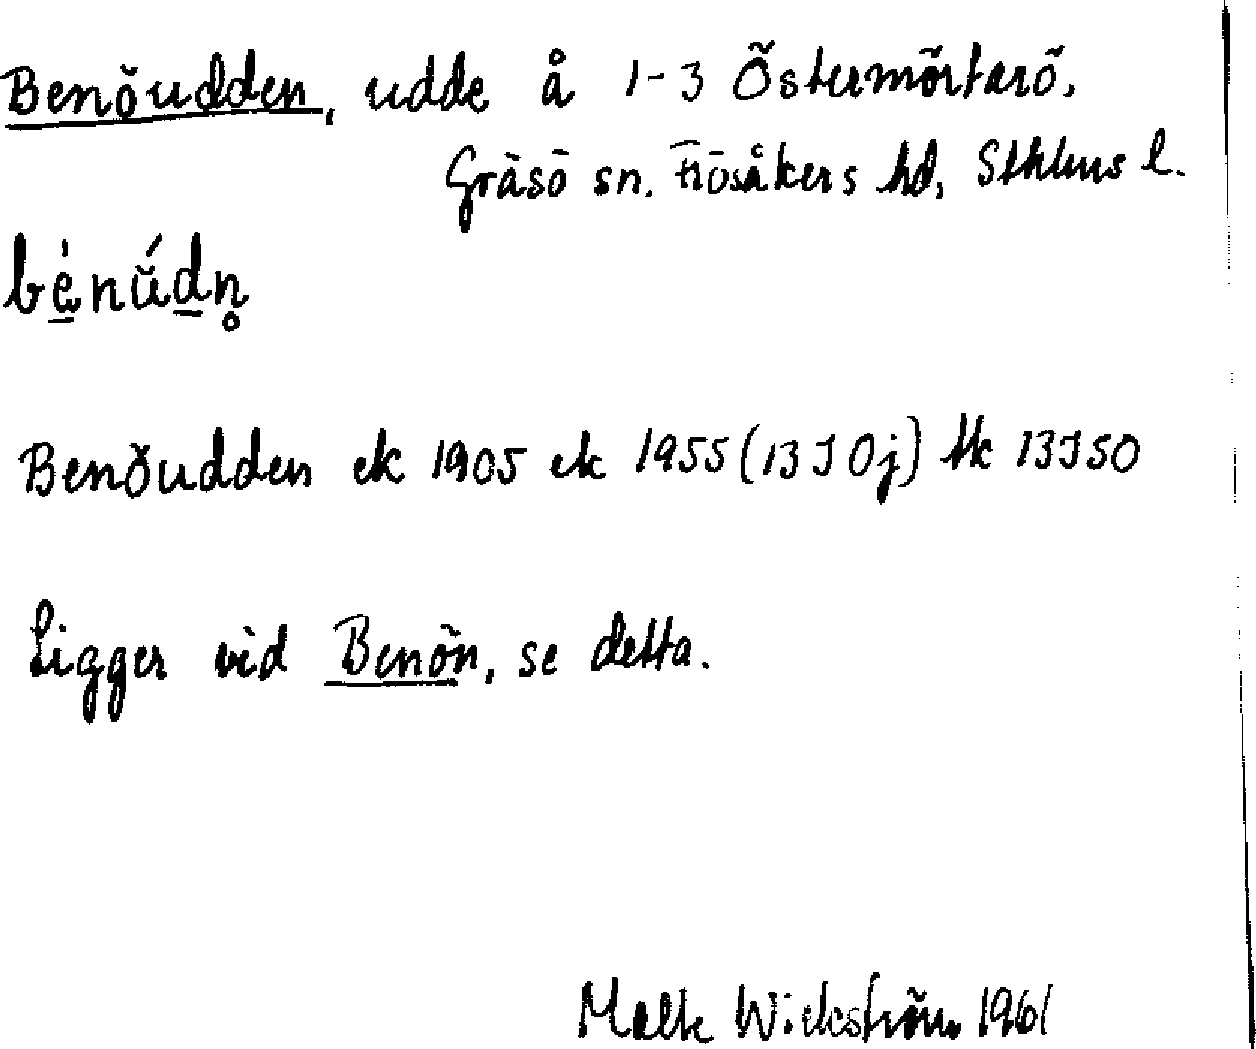 Benöudden, udde å 1-3 Östermörtarö,
Gräsö sn. Frösåkers hd, Sthlms l.
bènúdn̥
Benöudden ek 1905 ek 1955 (13 J 0j) tk 13J50
Ligger vid Benön, se detta.
Wickström 1961